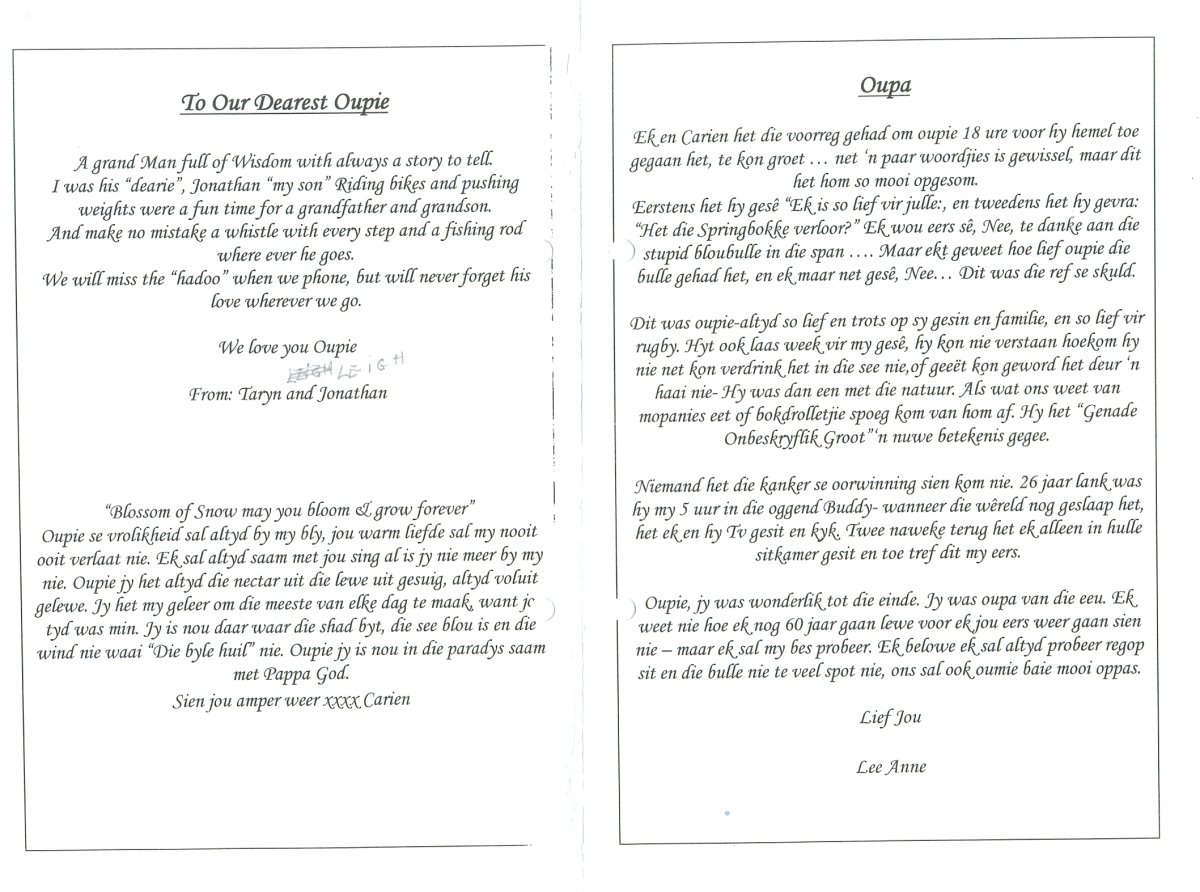 To Our Dearest Oupie
A grand Man full of Wisdom with always a story to tell.
I was his “dearie”, Jonathan “my son” Riding bikes and pushing
weights were a fun time for a grandfather and grandson.
And make no mistake a whistle with every step and a fishing rod
where ever he goes.
We will miss the “hadoo” when we phone, but will never forget his
love wherever we go.
We love you Oupie
LEIGH
From: Taryn and Jonathan
“Blossom of Snow may you bloom & grow forever”
Oupie se vrolikheid sal altyd by my bly, jou warm liefde sal my nooit
ooit verlaat nie. Ek sal altyd saam met jou sing al is jy nie meer by my
nie. Oupie jy het altyd die nectar uit die lewe uit gesuig, altyd voluit
gelewe. Jy het my geleer om die meeste van elke dag te maak, want jc
tyd was min. Jy is nou daar waar die shad byt, die see blou is en die
wind nie waai “Die byle huil” nie. Oupie jy is nou in die paradys saam
met Pappa God.
Sien jou amper weer xxxx Carien
Oupa
Ek en Carien het die voorreg gehad om oupie 18 ure voor hy hemel toe
gegaan het, te kon groet … net ‘n paar woordjies is gewissel, maar dit
het hom so mooi opgesom.
Eerstens het hy gesê “Ek is so lief vir julle:, en tweedens het hy gevra:
“Het die Springbokke verloor?” Ek wou eers sê, Nee, te danke aan die
stupid bloubulle in die span …. Maar ekt geweet hoe lief oupie die
bulle gehad het, en ek maar net gesê, Nee… Dit was die ref se skuld.
Dit was oupie-altyd so lief en trots op sy gesin en familie, en so lief vir
rugby. Hyt ook laas week vir my gesê, hy kon nie verstaan hoekom hy
nie net kon verdrink het in die see nie,of geeët kon geword het deur ‘n
haai nie- Hy was dan een met die natuur. Als wat ons weet van
mopanies eet of bokdrolletjie spoeg kom van hom af. Hy het “Genade
Onbeskryflik Groot”‘n nuwe betekenis gegee.
Niemand het die kanker se oorwinning sien kom nie. 26 jaar lank was
hy my 5 uur in die oggend Buddy- wanneer die wêreld nog geslaap het,
het ek en hy Tv gesit en kyk. Twee naweke terug het ek alleen in hulle
sitkamer gesit en toe tref dit my eers.
Oupie, jy was wonderlik tot die einde. Jy was oupa van die eeu. Ek
weet nie hoe ek nog 60 jaar gaan lewe voor ek jou eers weer gaan sien
nie – maar ek sal my bes probeer. Ek belowe ek sal altyd probeer regop
sit en die bulle nie te veel spot nie, ons sal ook oumie baie mooi oppas.
Lief Jou
Lee Anne